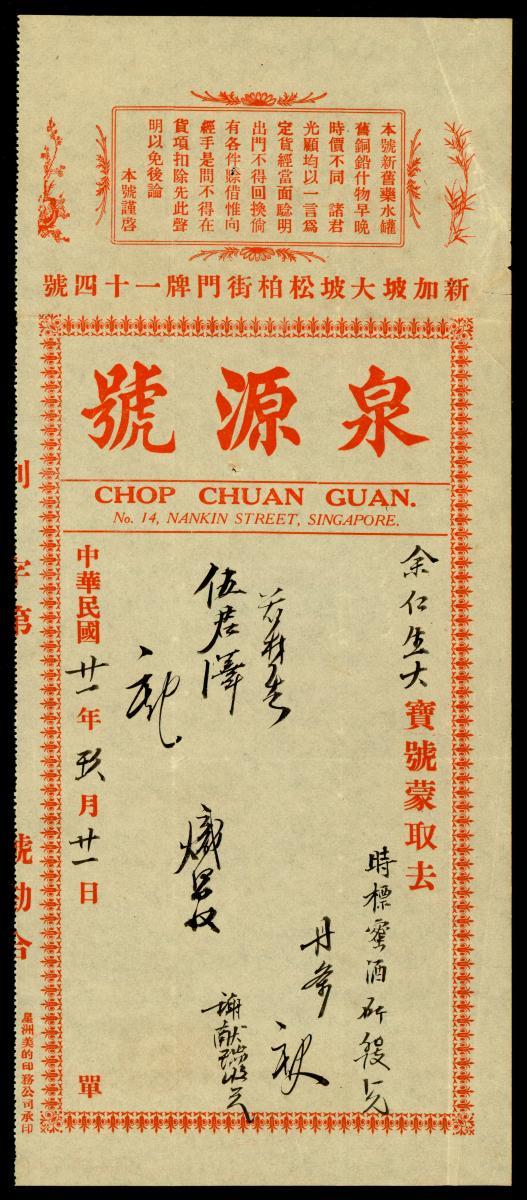 本號新舊藥水罐
舊銅鉛什物早晚
時價不同　諸君
光顧均以一言爲
定貨經當面驗明
出門不得回換倘
有各件賒借惟向
經手是問不得在
貨項扣除先此聲
明以免後論
本號謹啓
新加坡大坡松柏街門牌一十四號
泉源號
CHOP CHUAN GUAN.
No. 14, NANKIN STREET, SINGAPORE.
余仁生大寶號蒙取去
時標蜜酒
丹參
伍君澤
謝献
中華民國廿一年玖月廿一日　單
字第
星洲美的印務公司承印